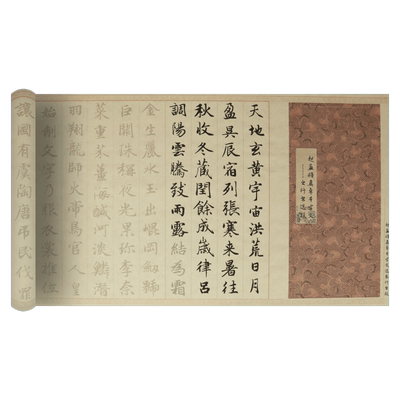 天地玄黃宇宙洪荒日月
盈昃辰宿列張寒来暑往
秋收冬藏閏餘成歲律呂
調陽雲騰致雨露結為霜
金生麗水玉出崐岡劔號
巨闕珠稱夜光果珍李柰
菜重芥薑海鹹河淡鱗潛
羽翔龍師火帝鳥官人皇
始制文字乃服衣裳推位
讓國有虞陶唐弔民伐罪